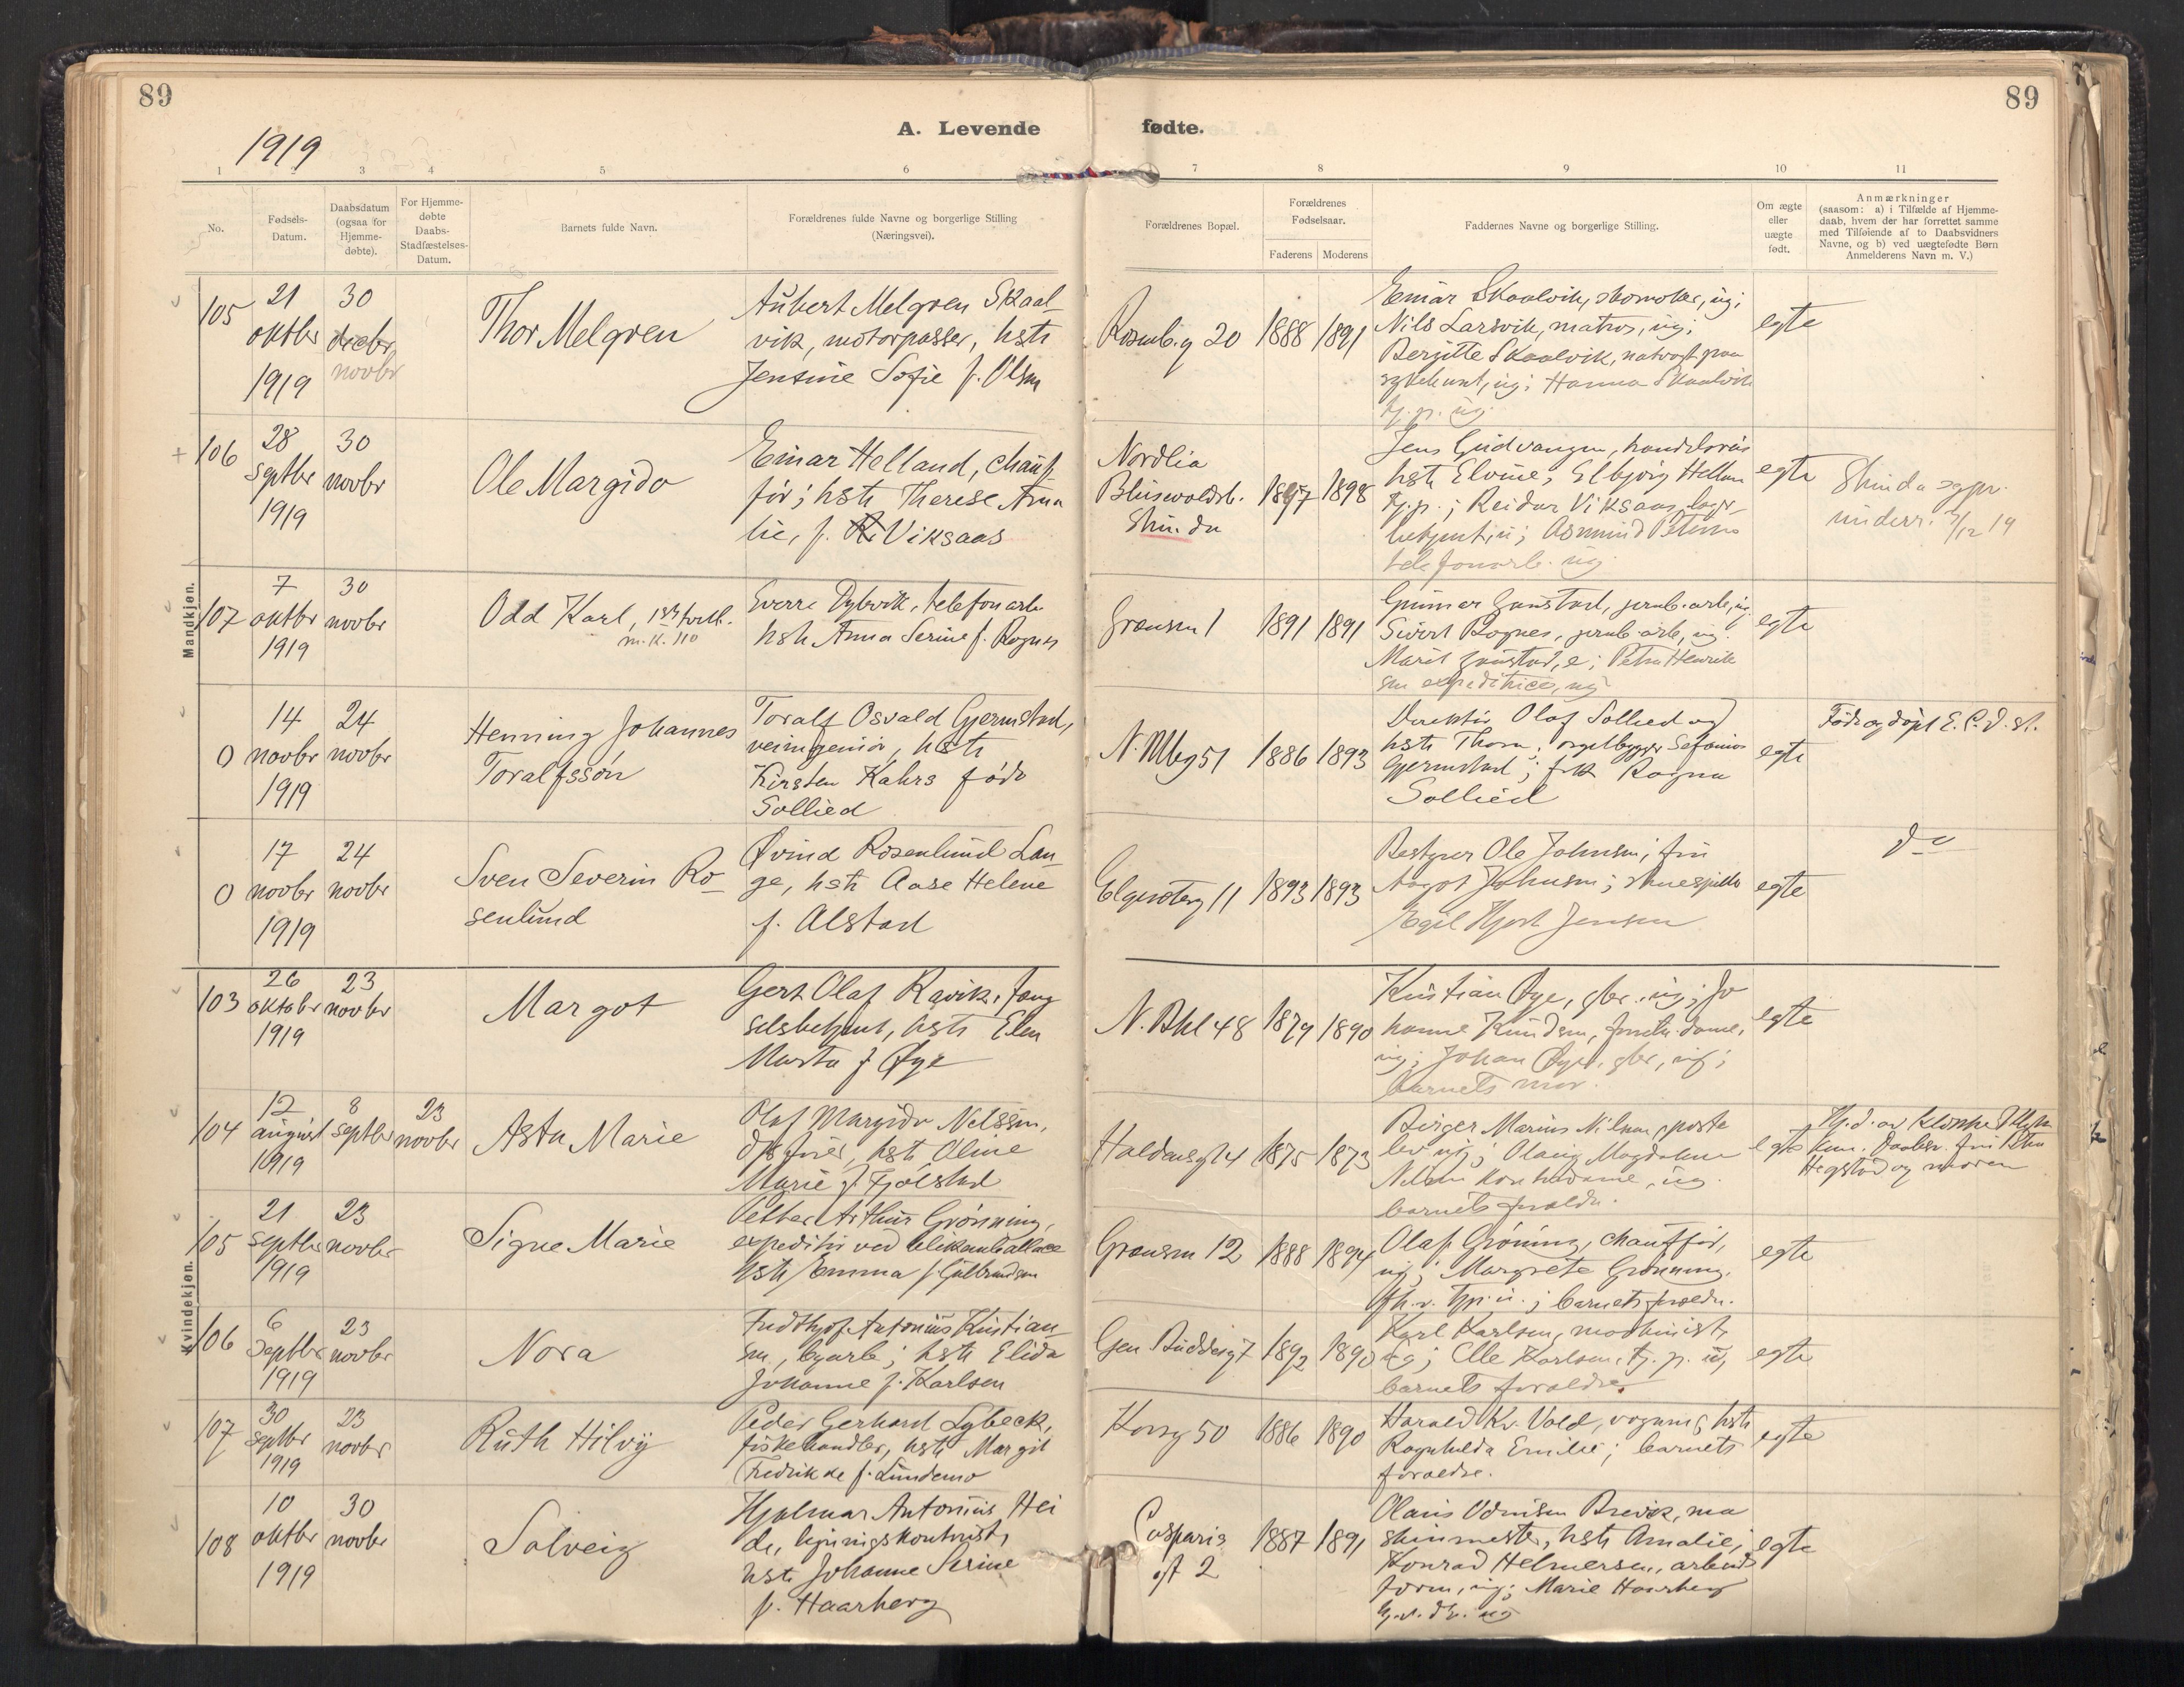 89
89
1919
A. Levende fødte.
1 2 3 4 5 6 7 8 9 10 11
No.
Fødsels-
Datum.
Daabsdatum
(ogsaa for
Hjemme-
døbte).
For Hjemme-
døbte
Daabs-
Stadfæstelses-
Datum.
Barnets fulde Navn.
Forældrenes fulde Navne og borgerlige Stilling
(Næringsvei).
Forældrenes Bopæl.
Forældrenes
Fødselsaar.
Faderens
Moderens
Faddernes Navne og borgerlige Stilling.
Om ægte
eller
uægte
født.
Anmærkninger
(saasom: a) i Tilfælde af Hjemme-
daab, hvem der har forrettet samme
med Tilføiende af to Daabsvidners
Navne, og b) ved uægtefødte Børn
Anmelderens Navn m. V.)
Mandkjøn.
105
21
oktbr
1919
30
decbr
novbr
Thor Melgren
Aubert Melgren Skaal-
vik, motorpasser, hstr
Jensine Sofie f. Olsen
Rosenb.g 20
1888
1891
Einar Skaalvik, skomaker, ug;
Nils Larsvik, matros, ug;
Bergitte Skaalvik,
Hanna Skaalvik
tj.p. ug
egte
106
28
septbr
1919
30
novbr
Ole Margido
Einar Helland, chauf-
før; hstr Therese Ama
lie, f. Viksaas
Nordlia
Strinda
1897
1898
Jens Gudvangen,
hstr Elvine;
tj.p.; Reidar Viksaas, lager-
betjent, u; Asmund
telefonarb. ug
egte
Strinda sgpr.
underr. 3/12 19
107
7
oktbr
1919
30
novbr
Odd Karl,
m.k. 110
Sverre Dybvik, telefonarb
hstr Anna Serine f. Rognes
Grænsen 1
1891
1891
Gunnar
Sivert Rognes, jernb.arb, ug.
Marit
Petra Henrik
sen expeditrice, ug
egte
0
14
novbr
1919
24
novbr
Henning Johannes
Toralfssøn
Toralf Osvald Gjermstad,
veiingeniør, hstr
Kirsten Kahrs født
Sollied
51
1886
1893
Direktør Olaf Sollied og
hstr Thora; orgelbygger
Gjermstad; frk Ragna
Sollied
egte
Født og døpt E.C.D.st.
0
17
novbr
1919
24
novbr
Sven Severin Ro-
senlund
Øvind Rosenlund Lan-
ge, hstr Aase Helene
f. Alstad
Elgeseterg 11
1893
1893
Bestyrer Ole Johnsen; fru
Aagot Johnsen; skuespiller
Egil Hjort Jensen
egte
do
Kvindekjøn.
103
26
oktobr
1919
23
novbr
Margot
Gert Olaf Ravik, fæng
selsbetjent, hstr Elen
Marta f Øye
48
1879
1890
Kristian Øye, gbr. ug; Jo
hanne Knudsen,
ug; Johan Øye, gbr, ug;
barnets mor.
egte
104
12
august
1919
8
septbr
23
novbr
Asta Marie
Olaf Margido Nilssen,
hstr Oline
Marie f. Fjølstad
14
1875
1873
Birger Marius Nilsen,
Magdalene
Nilsen kontordame, ug.
barnets foreldre.
egte
Hegstad og moren
105
21
septbr
1919
23
novbr
Signe Marie
Petter Arthur Grønning,
expeditør ved
hstr Emma f. Gulbrandsen
Grænsen 12
1888
1894
Olaf Grøning, chauffør,
ug; Margrete Grønning,
barnets foreldre.
egte
106
6
septbr
1919
23
novbr
Nora
Fridthjof Antonius Kristian-
sen, byarb; hstr Elida
Johanne f. Karlsen
Gen Buddesg 7
1892
1890
Karl Karlsen, maskinist,
ug; Elle Karlsen, tj.p. u,
barnets foreldre.
egte
107
30
septbr
1919
23
novbr
Ruth Hilvy
Peder Gerhard Lybeck,
fiskehandler, hstr Margit
Fredrikke f. Lundemo
Kong 50
1886
1890
Harald Kr. Vold, vognm; hstr
Ragnhilda Emilie; barnets
forældre.
egte
108
10
oktbr
1919
30
novbr
Solveig
Hjalmar Antonius Hei
de, ligningskontorist,
hstr Johanne Serine
f. Haarberg
Casparis
gt 2
1887
1891
Olaus Odinsen Brevik, ma
skinmester, hstr Amalie;
Konrad Helmersen, arbeids
form, ug; Marie Haarberg
ug
egte